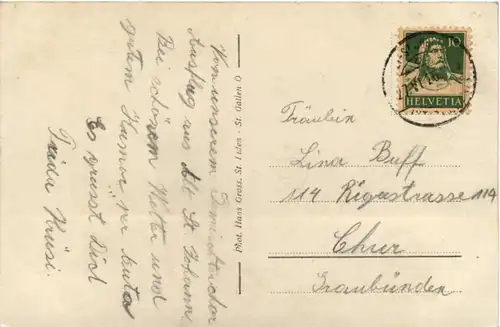 Von unserem
Ausflug aus Alt St. Johann
Bei schönem Wetter und
gutem Humor
Es grüsst Dich
Frida Krüsi.
Phot. Hans Gross, St. Fiden - St. Gallen O
10
HELVETIA
Fräulein
Lina Buff
114 Rigastrasse 114
Chur
Graubünden